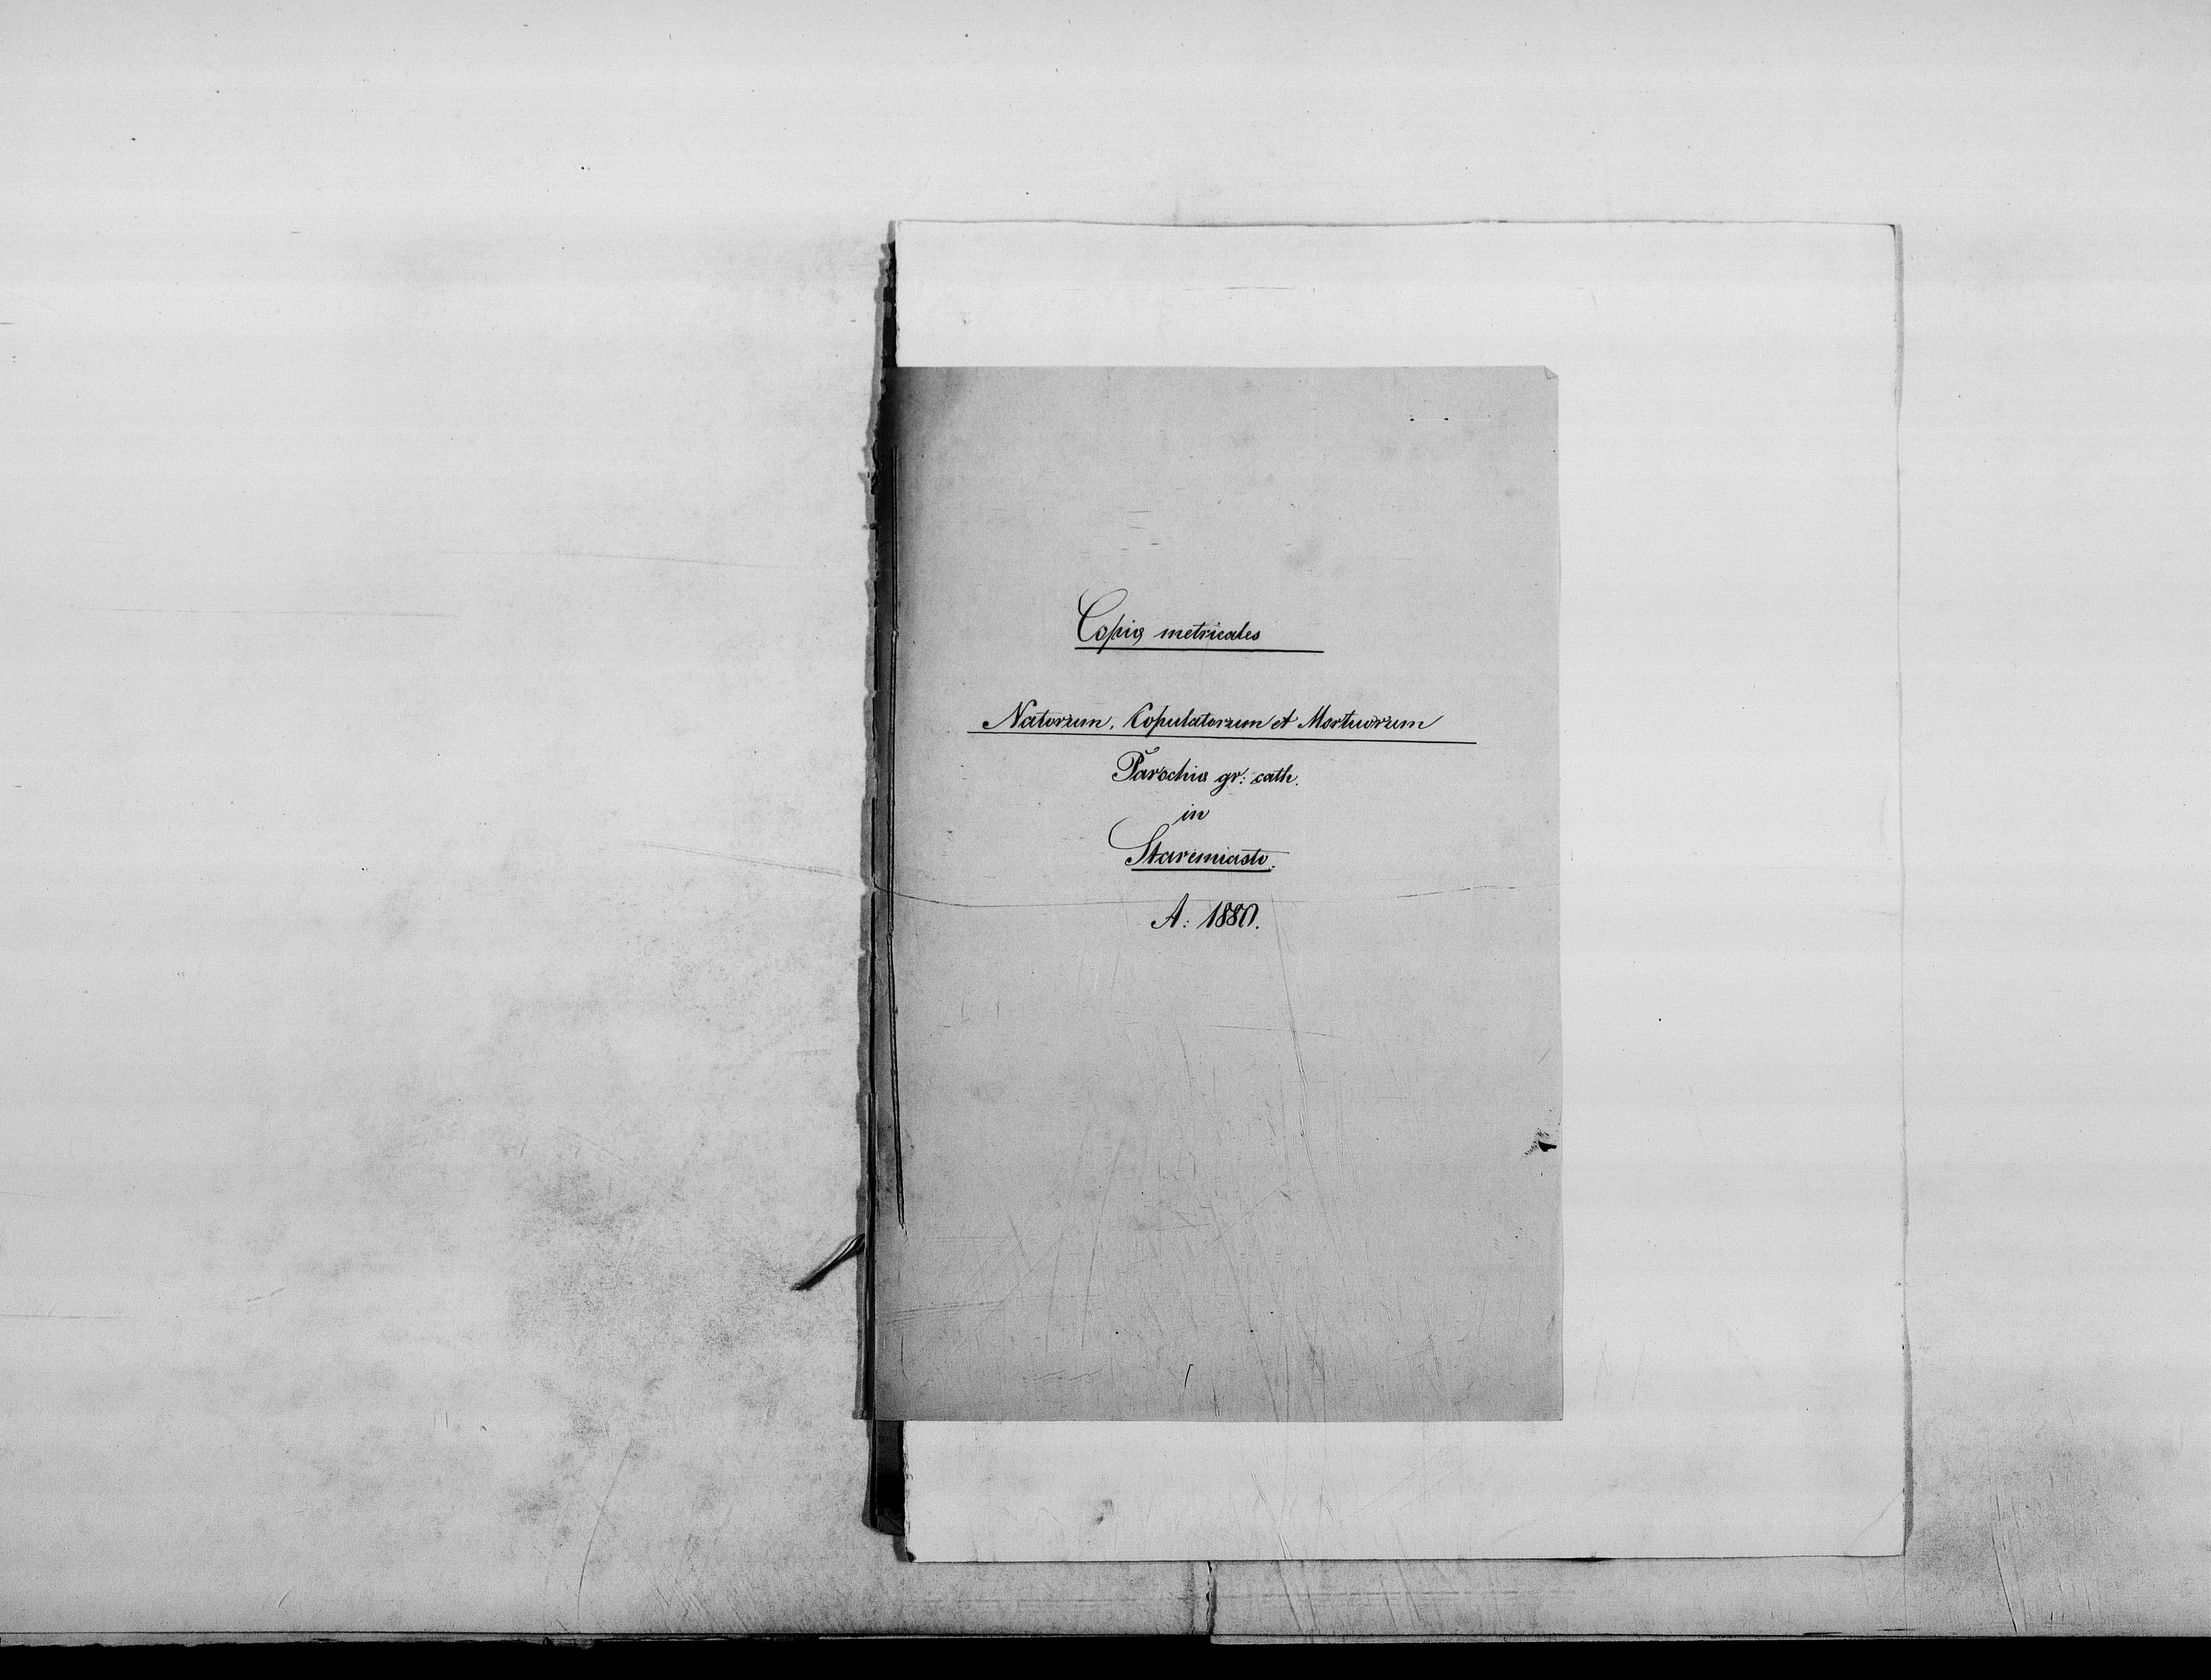 Copiæ metricales
Natorum, Copulatorum et Mortuorum
Parochia gr: cath.
in
Staremiasto.
A: 1880.